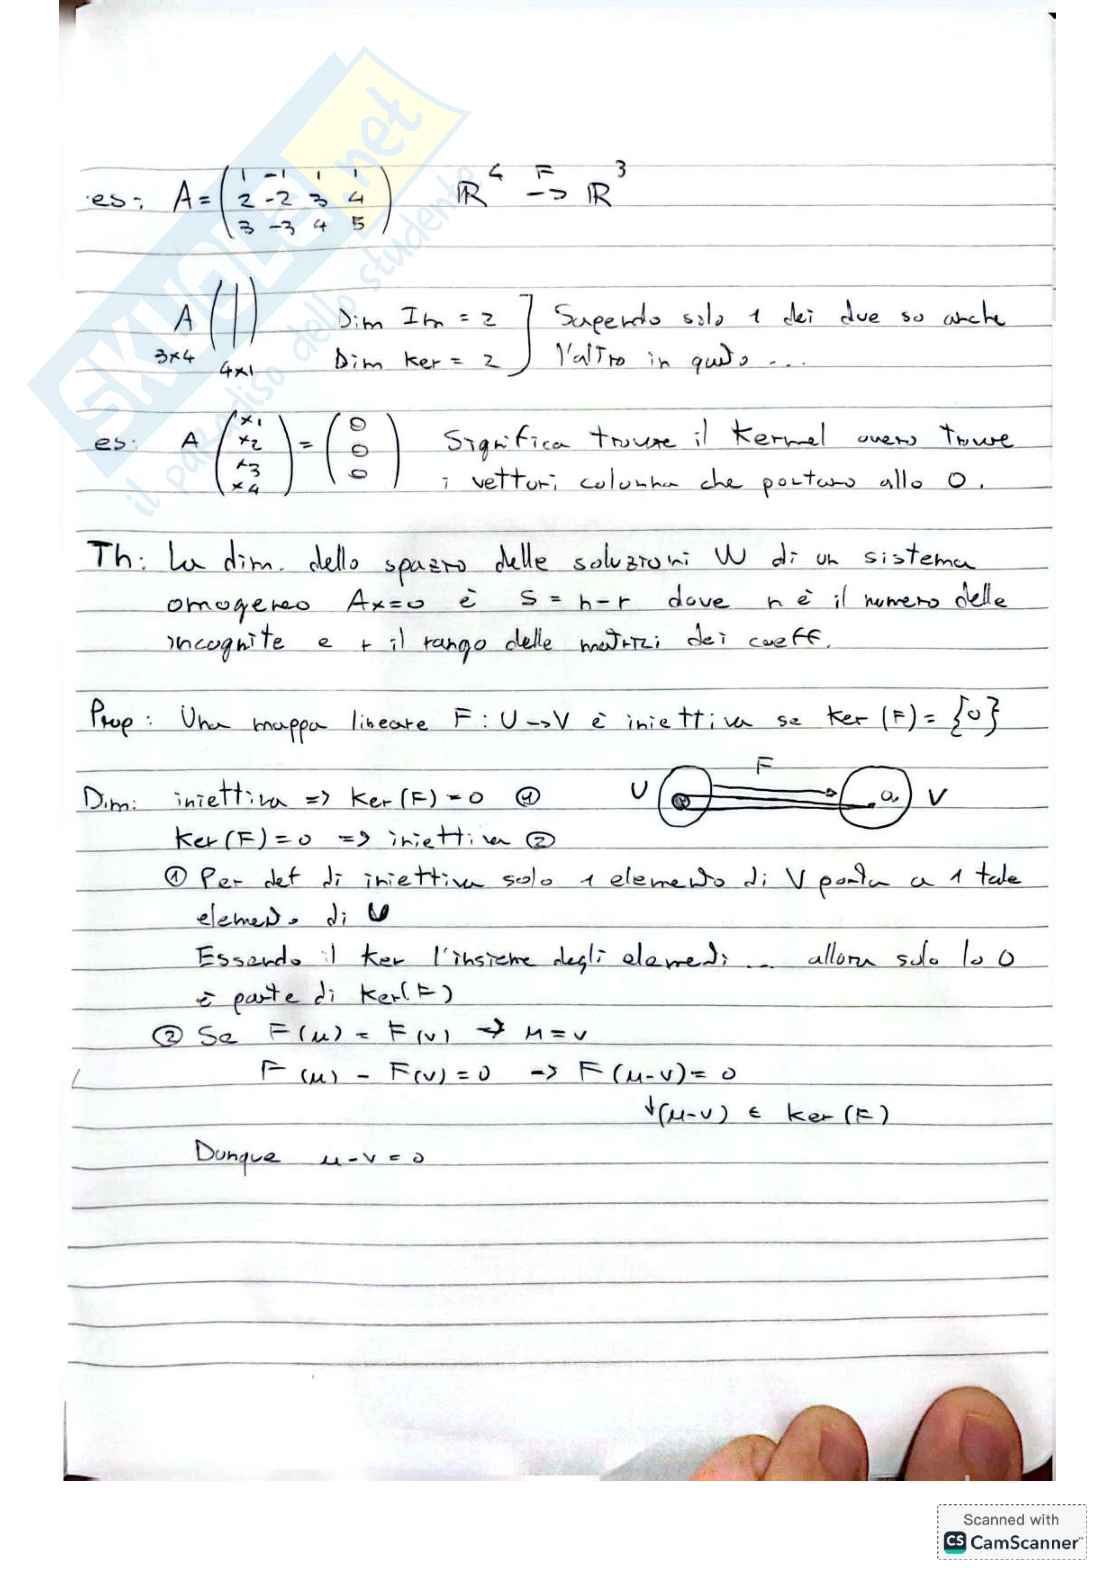 es: A = ( 1 -1 1 1
2 -2 3 4
3 -3 4 5 ) ℝ⁴ F→ ℝ³
A ( | ) Dim Im = 2 ] Sapendo solo 1 dei due so anche
3x4 4x1 Dim ker = 2 l'altro in quanto ...
es: A ( x1 x2 x3 x4 ) = ( 0 0 0 ) Significa trovare il Kernel ovvero trovare
i vettori colonna che portano allo 0.
Th: La dim. dello spazio delle soluzioni W di un sistema
omogeneo Ax=0 è s = n-r dove n è il numero delle
incognite e r il rango delle matrici dei coeff.
Prop: Una mappa lineare F: U → V è iniettiva se ker (F) = {0}
Dim: iniettiva => ker(F)=0 ① U F V
ker(F)=0 => iniettiva ②
① Per def di iniettiva solo 1 elemento di V porta a 1 tale
elemento di U
Essendo il ker l'insieme degli elementi ... allora solo lo 0
è parte di ker(F)
② Se F(u) = F(v) → u = v
F(u) - F(v) = 0 → F(u-v) = 0
↓(u-v) ∈ ker (F)
Dunque u-v = 0
SKUOLA.net
il paradiso dello studente
Scanned with
CS CamScanner™